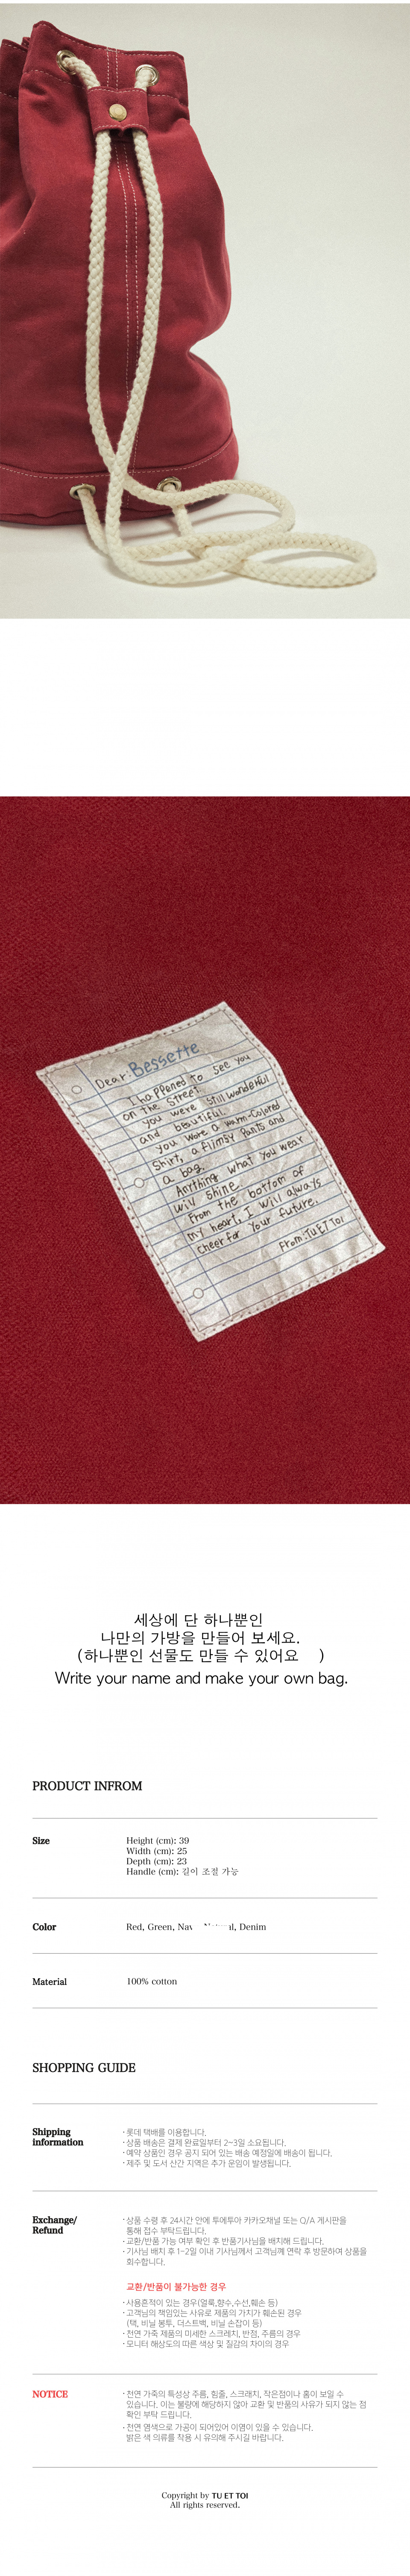 Dear. Bessette
I happened to see you
on the street.
you were still wonderful
and beautiful.
you wore a warm-colored
shirt, a flimsy pants and
a bag.
Anything what you wear
will shine.
From the bottom of
my heart, I will always
cheer for your future.
From: TU ET TOI
세상에 단 하나뿐인
나만의 가방을 만들어 보세요.
(하나뿐인 선물도 만들 수 있어요 )
Write your name and make your own bag.
PRODUCT INFROM
Size
Height (cm): 39
Width (cm): 25
Depth (cm): 23
Handle (cm): 길이 조절 가능
Color
Red, Green, Denim
Material
100% cotton
SHOPPING GUIDE
Shipping
information
· 롯데 택배를 이용합니다.
· 상품 배송은 결제 완료일부터 2~3일 소요됩니다.
· 예약 상품인 경우 공지 되어 있는 배송 예정일에 배송이 됩니다.
· 제주 및 도서 산간 지역은 추가 운임이 발생됩니다.
Exchange/
Refund
· 상품 수령 후 24시간 안에 투에투아 카카오채널 또는 Q/A 게시판을
통해 접수 부탁드립니다.
· 교환/반품 가능 여부 확인 후 반품기사님을 배치해 드립니다.
· 기사님 배치 후 1-2일 이내 기사님께서 고객님께 연락 후 방문하여 상품을
회수합니다.
교환/반품이 불가능한 경우
· 사용흔적이 있는 경우(얼룩,향수,수선,훼손 등)
· 고객님의 책임있는 사유로 제품의 가치가 훼손된 경우
(택, 비닐 봉투, 더스트백, 비닐 손잡이 등)
· 천연 가죽 제품의 미세한 스크레치, 반점, 주름의 경우
· 모니터 해상도의 따른 색상 및 질감의 차이의 경우
NOTICE
· 천연 가죽의 특성상 주름, 힘줄, 스크래치, 작은점이나 홈이 보일 수
있습니다. 이는 불량에 해당하지 않아 교환 및 반품의 사유가 되지 않는 점
확인 부탁 드립니다.
· 천연 염색으로 가공이 되어있어 이염이 있을 수 있습니다.
밝은 색 의류를 착용 시 유의해 주시길 바랍니다.
Copyright by TU ET TOI
All rights reserved.